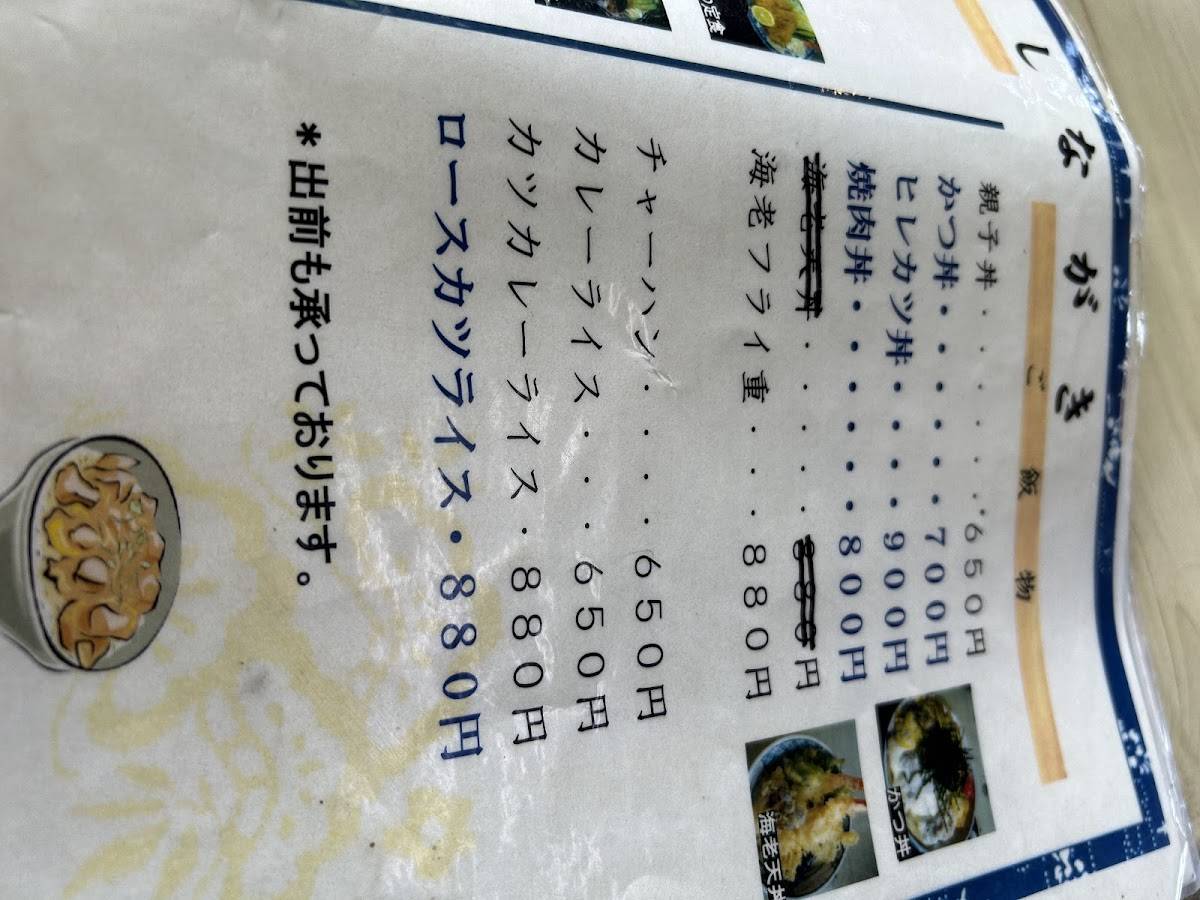 しながき
ご飯物
親子丼・・・・・６５０円
かつ丼・・・・・・７００円
ヒレカツ丼・・・・９００円
焼肉丼・・・・・・８００円
海老天丼・・・・・８８０円
海老フライ重・・・８８０円
チャーハン・・・・・６５０円
カレーライス・・・・６５０円
カツカレーライス・８８０円
ロースカツライス・８８０円
＊出前も承っております。
かつ丼
海老天丼
定食